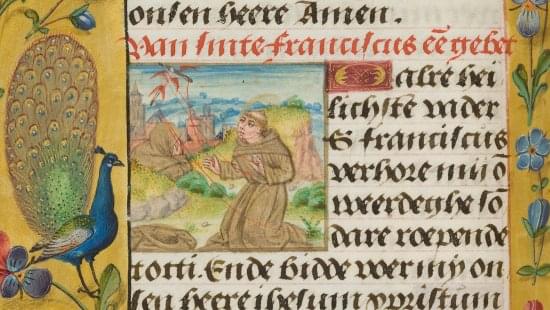 onsen heere Amen.
Van sinte franciscus ēē gebet
O alre hei
lichste vader
S franciscus
verhore mij ō
weerdeghe sō
dare roepende
totti. Ende bidde voer my on
sen heere ihesum xpristum